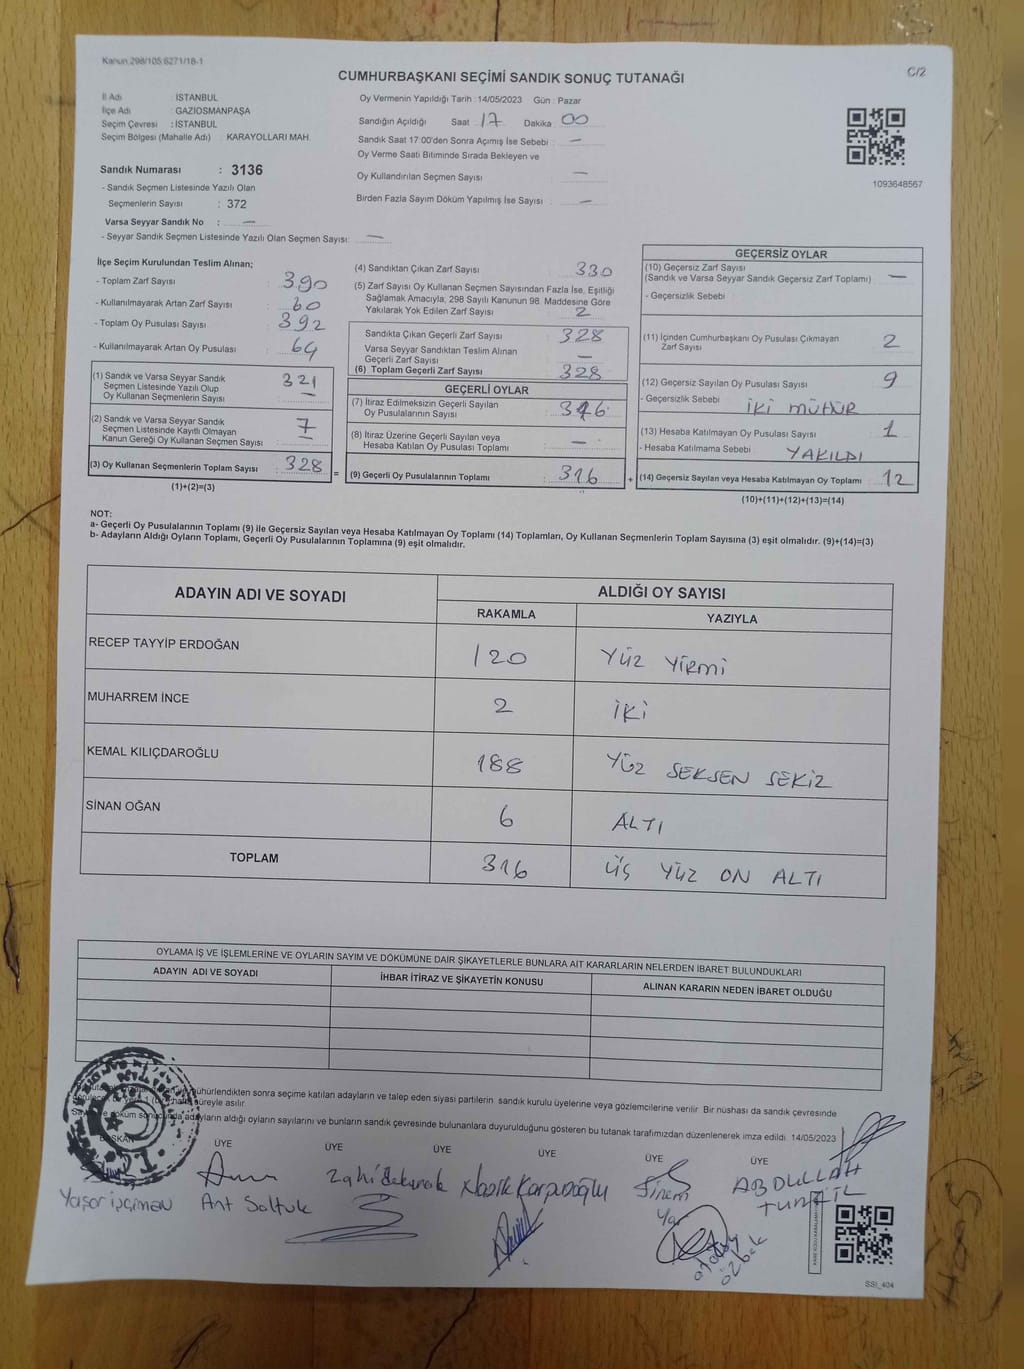 Kanun.298/105.6271/18-1
C/2
CUMHURBAŞKANI SEÇİMİ SANDIK SONUÇ TUTANAĞI
İl Adı : İSTANBUL
İlçe Adı : GAZİOSMANPAŞA
Seçim Çevresi : İSTANBUL
Seçim Bölgesi (Mahalle Adı) : KARAYOLLARI MAH.
Sandık Numarası : 3136
- Sandık Seçmen Listesinde Yazılı Olan
Seçmenlerin Sayısı : 372
Varsa Seyyar Sandık No : —
- Seyyar Sandık Seçmen Listesinde Yazılı Olan Seçmen Sayısı: —
Oy Vermenin Yapıldığı Tarih : 14/05/2023 Gün : Pazar
Sandığın Açıldığı Saat 17 Dakika 00
Sandık Saat 17.00'den Sonra Açımış İse Sebebi : —
Oy Verme Saati Bitiminde Sırada Bekleyen ve
Oy Kullandırılan Seçmen Sayısı : —
Birden Fazla Sayım Döküm Yapılmış İse Sayısı : —
1093648567
İlçe Seçim Kurulundan Teslim Alınan;
- Toplam Zarf Sayısı : 390
- Kullanılmayarak Artan Zarf Sayısı : 60
- Toplam Oy Pusulası Sayısı : 392
- Kullanılmayarak Artan Oy Pusulası : 64
(1) Sandık ve Varsa Seyyar Sandık
Seçmen Listesinde Yazılı Olup
Oy Kullanan Seçmenlerin Sayısı : 321 —
(2) Sandık ve Varsa Seyyar Sandık
Seçmen Listesinde Kayıtlı Olmayan
Kanun Gereği Oy Kullanan Seçmen Sayısı : 7 —
(3) Oy Kullanan Seçmenlerin Toplam Sayısı : 328
(1)+(2)=(3)
(4) Sandıktan Çıkan Zarf Sayısı : 330
(5) Zarf Sayısı Oy Kullanan Seçmen Sayısından Fazla İse, Eşitliği
Sağlamak Amacıyla; 298 Sayılı Kanunun 98. Maddesine Göre
Yakılarak Yok Edilen Zarf Sayısı : 2
Sandıkta Çıkan Geçerli Zarf Sayısı : 328
Varsa Seyyar Sandıktan Teslim Alınan
Geçerli Zarf Sayısı : —
(6) Toplam Geçerli Zarf Sayısı : 328
GEÇERLİ OYLAR
(7) İtiraz Edilmeksizin Geçerli Sayılan
Oy Pusulalarının Sayısı : 316
(8) İtiraz Üzerine Geçerli Sayılan veya
Hesaba Katılan Oy Pusulası Toplamı : —
= (9) Geçerli Oy Pusulalarının Toplamı : 316 +
GEÇERSİZ OYLAR
(10) Geçersiz Zarf Sayısı
(Sandık ve Varsa Seyyar Sandık Geçersiz Zarf Toplamı) : —
- Geçersizlik Sebebi
(11) İçinden Cumhurbaşkanı Oy Pusulası Çıkmayan
Zarf Sayısı : 2
(12) Geçersiz Sayılan Oy Pusulası Sayısı : 9
- Geçersizlik Sebebi : İKİ MÜHÜR
(13) Hesaba Katılmayan Oy Pusulası Sayısı : 1
- Hesaba Katılmama Sebebi : YAKILDI
(14) Geçersiz Sayılan veya Hesaba Katılmayan Oy Toplamı : 12
(10)+(11)+(12)+(13)=(14)
NOT:
a- Geçerli Oy Pusulalarının Toplamı (9) ile Geçersiz Sayılan veya Hesaba Katılmayan Oy Toplamı (14) Toplamları, Oy Kullanan Seçmenlerin Toplam Sayısına (3) eşit olmalıdır. (9)+(14)=(3)
b- Adayların Aldığı Oyların Toplamı, Geçerli Oy Pusulalarının Toplamına (9) eşit olmalıdır.
ADAYIN ADI VE SOYADI ALDIĞI OY SAYISI
RAKAMLA YAZIYLA
RECEP TAYYİP ERDOĞAN 120 YÜZ YİRMİ
MUHARREM İNCE 2 İKİ
KEMAL KILIÇDAROĞLU 188 YÜZ SEKSEN SEKİZ
SİNAN OĞAN 6 ALTI
TOPLAM 316 ÜÇ YÜZ ON ALTI
OYLAMA İŞ VE İŞLEMLERİNE VE OYLARIN SAYIM VE DÖKÜMÜNE DAİR ŞİKAYETLERLE BUNLARA AİT KARARLARIN NELERDEN İBARET BULUNDUKLARI
ADAYIN ADI VE SOYADI İHBAR İTİRAZ VE ŞİKAYETİN KONUSU ALINAN KARARIN NEDEN İBARET OLDUĞU
mühürlendikten sonra seçime katılan adayların ve talep eden siyasi partilerin sandık kurulu üyelerine veya gözlemcilerine verilir. Bir nüshası da sandık çevresinde
süreyle asılır.
adayların aldığı oyların sayılarını ve bunların sandık çevresinde bulunanlara duyurulduğunu gösteren bu tutanak tarafımızdan düzenlenerek imza edildi. 14/05/2023
BAŞKAN ÜYE ÜYE ÜYE ÜYE ÜYE ÜYE
Yaşar Anıt Saltuk Sinem ABDULLAH
Özbek
SSI_404